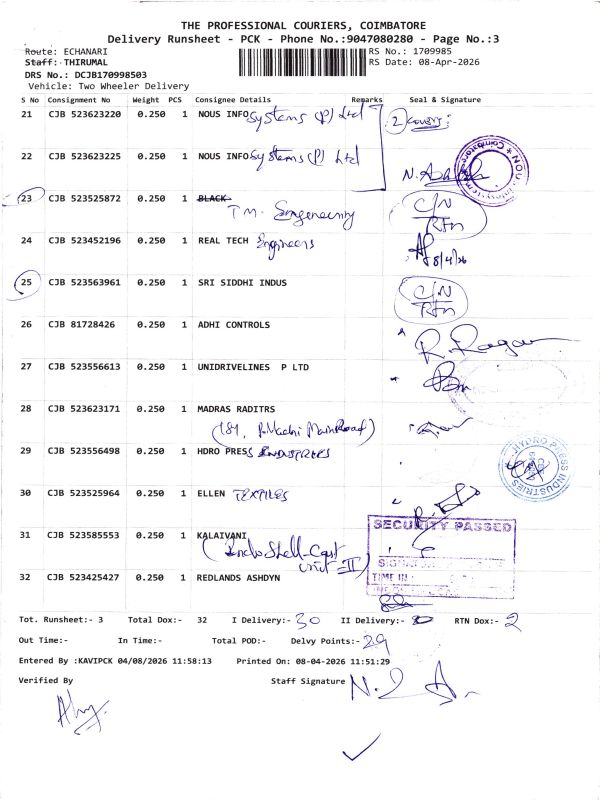 THE PROFESSIONAL COURIERS, COIMBATORE
Delivery Runsheet - PCK - Phone No.:9047080280 - Page No.:3
Route: ECHANARI
RS No.: 1709985
Staff: THIRUMAL
RS Date: 08-Apr-2026
DRS No.: DCJB170998503
Vehicle: Two Wheeler Delivery
S No Consignment No Weight PCS Consignee Details Remarks Seal & Signature
21 CJB 523623220 0.250 1 NOUS INFO Systems (P) Ltd 2 covers:
22 CJB 523623225 0.250 1 NOUS INFO Systems (P) Ltd
23 CJB 523525872 0.250 1 BLACK C/N
T.M. Engineering RTN
24 CJB 523452196 0.250 1 REAL TECH Engineers
8/4/26
25 CJB 523563961 0.250 1 SRI SIDDHI INDUS C/N
RTN
26 CJB 81728426 0.250 1 ADHI CONTROLS
R. Ragav
27 CJB 523556613 0.250 1 UNIDRIVELINES P LTD
28 CJB 523623171 0.250 1 MADRAS RADITRS
(181, Main Road)
29 CJB 523556498 0.250 1 HDRO PRESS INDUSTRIES
HYDRO PRESS INDUSTRIES
30 CJB 523525964 0.250 1 ELLEN TEXTILES
SECURITY PASSED
31 CJB 523585553 0.250 1 KALAIVANI
(Indo Shell-Cast
Unit-II)
SIGNATURE
TIME IN :
32 CJB 523425427 0.250 1 REDLANDS ASHDYN
Tot. Runsheet:- 3 Total Dox:- 32 I Delivery:- 30 II Delivery:- RTN Dox:- 2
Out Time:- In Time:- Total POD:- Delvy Points:- 29
Entered By :KAVIPCK 04/08/2026 11:58:13 Printed On: 08-04-2026 11:51:29
Verified By Staff Signature